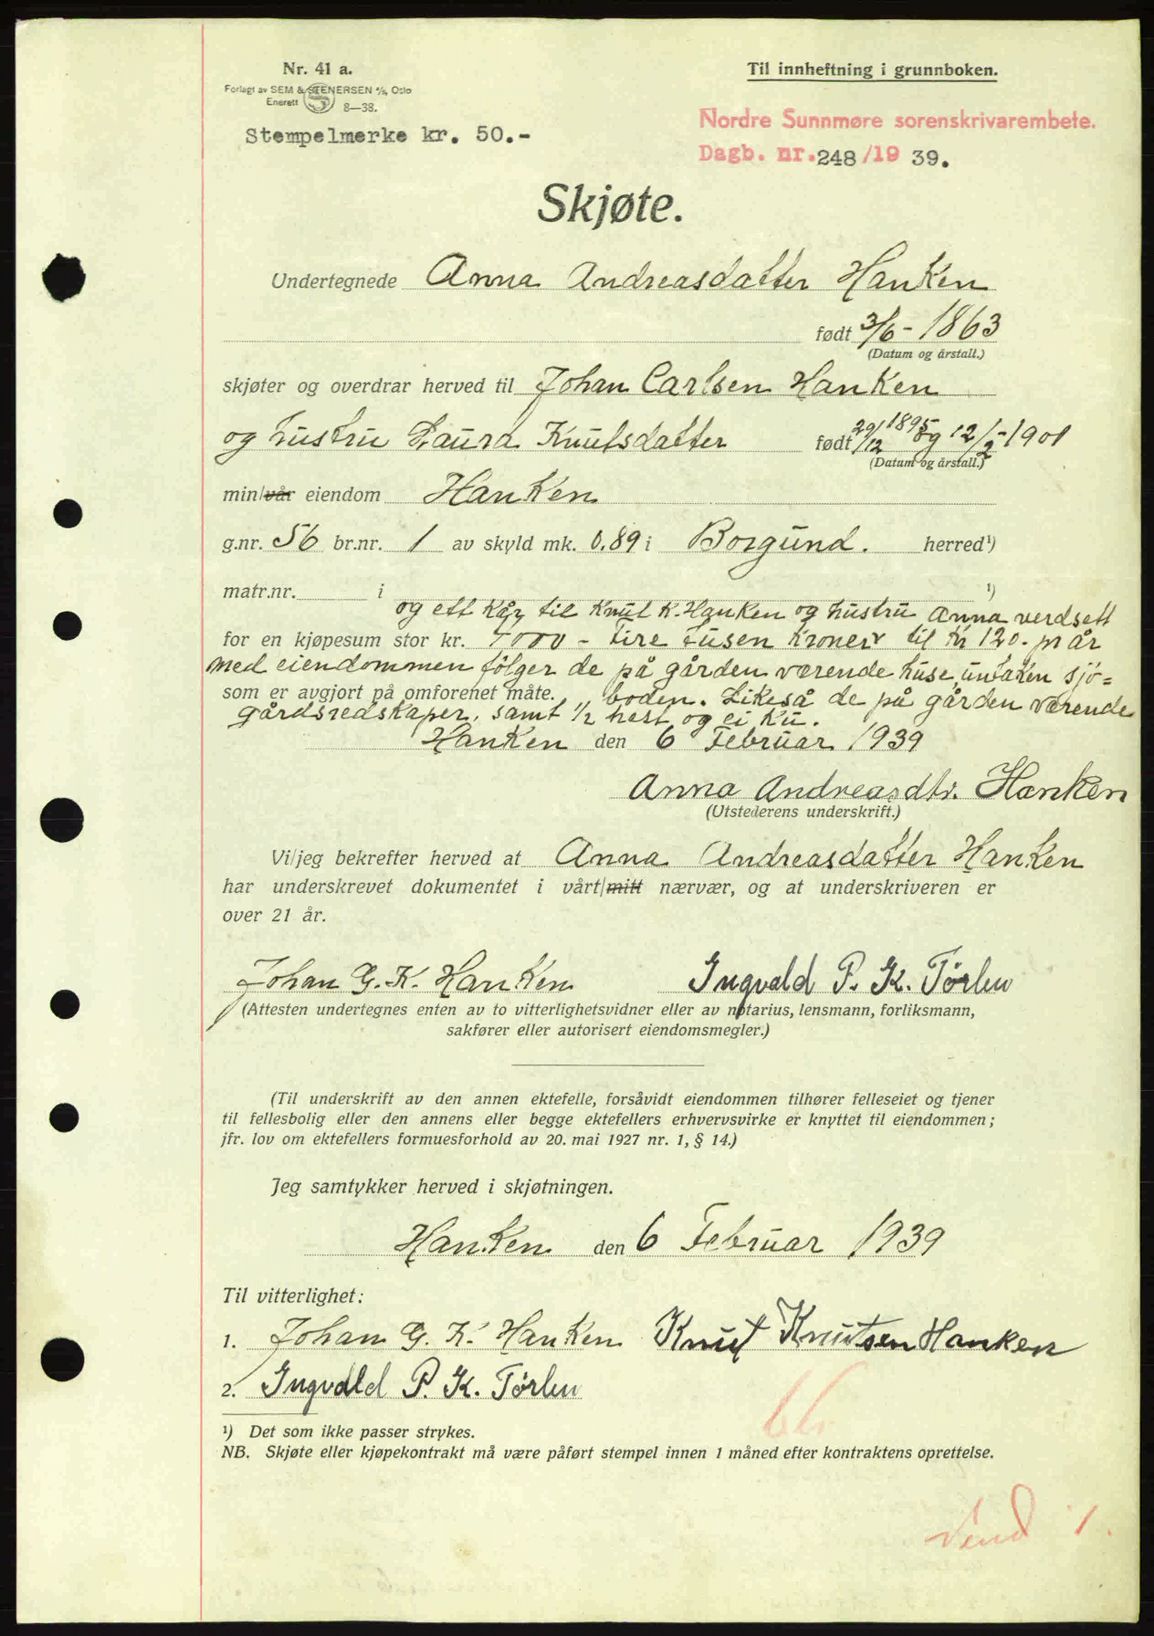 Nr. 41 a.
Forlagt av SEM & STENERSEN A/S, Oslo
Enerett S 8—38.
Stempelmerke kr. 50.-
Til innheftning i grunnboken.
Nordre Sunnmøre sorenskrivarembete.
Dagb. nr. 248/19 39.
Skjøte.
Undertegnede Anna Andreasdatter Hanken
født 3/6 - 1863
(Datum og årstall.)
skjøter og overdrar herved til Johan Carlsen Hanken
og hustru Laura Knutsdatter født 29/12 1895 og 12/2 - 1901
(Datum og årstall.)
min/vår eiendom Hanken
g.nr. 56 br.nr. 1 av skyld mk. 0.89 i Borgund. herred¹)
matr.nr. i ¹)
og ett kår til Knut K. Hanken og hustru Anna verdsett
for en kjøpesum stor kr. 4000 - Fire tusen kroner til kr 120.- pr år
med eiendommen følger de på gården værende huse, untaken sjø=
som er avgjort på omforenet måte. boden. Likeså de på gården værende
gårdsredskaper, samt 1/2 hest og ei ku.
Hanken den 6 Februar 1939
Anna Andreasdtr. Hanken
(Utstederens underskrift.)
Vi/jeg bekrefter herved at Anna Andreasdatter Hanken
har underskrevet dokumentet i vårt/mitt nærvær, og at underskriveren er
over 21 år.
Johan G. K. Hanken Ingvald P. K. Tørlen
(Attesten undertegnes enten av to vitterlighetsvidner eller av notarius, lensmann, forliksmann,
sakfører eller autorisert eiendomsmegler.)
(Til underskrift av den annen ektefelle, forsåvidt eiendommen tilhører felleseiet og tjener
til fellesbolig eller den annens eller begge ektefellers erhvervsvirke er knyttet til eiendommen;
jfr. lov om ektefellers formuesforhold av 20. mai 1927 nr. 1, § 14.)
Jeg samtykker herved i skjøtningen.
Hanken den 6 Februar 1939
Til vitterlighet:
1. Johan G. K. Hanken Knut Knutsen Hanken
2. Ingvald P. K. Tørlen
¹) Det som ikke passer strykes.
NB. Skjøte eller kjøpekontrakt må være påført stempel innen 1 måned efter kontraktens oprettelse.
Vend 1.